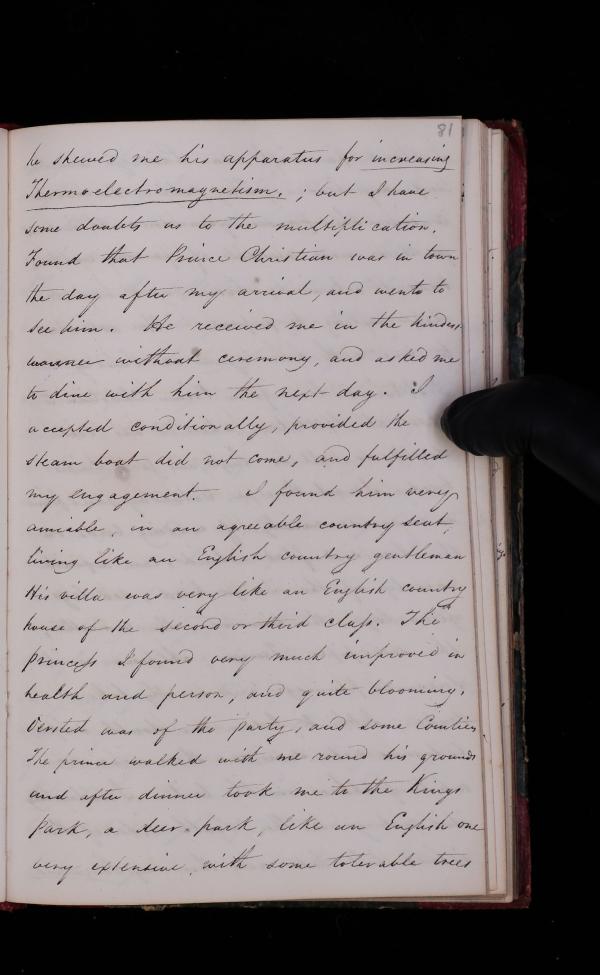 81
he shewed me his apparatus for increasing
Thermoelectromagnetism. ; but I have
some doubts as to the multiplication.
Found that Prince Christian was in town
the day after my arrival, and wento to
see him. He received me in the kindest
manner without ceremony, and asked me
to dine with him the next day. I
accepted conditionally, provided the
steam boat did not come, and fulfilled
my engagement. I found him very
amiable, in an agreeable country seat,
living like an English country gentleman
His villa was very like an English country
house of the second or third class. The
princess I found very much improved in
health and person, and quite blooming.
Oersted was of the party, and some Courtiers
The prince walked with me round his grounds
and after dinner took me to the Kings
Park, a deer-park, like an English one
very extensive, with some tolerable trees